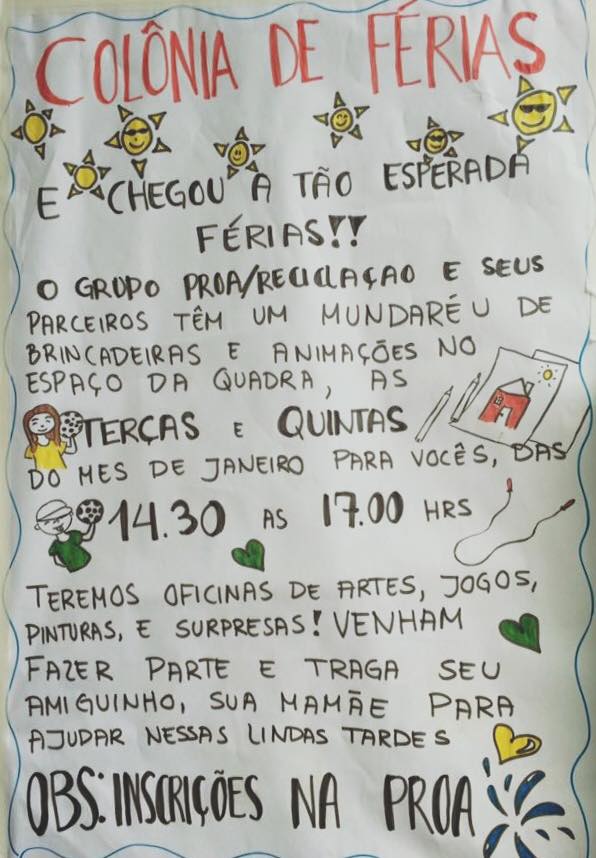 COLÔNIA DE FÉRIAS
E CHEGOU A TÃO ESPERADA
FÉRIAS!!
O GRUPO PROA/RECICLAÇAO E SEUS
PARCEIROS TÊM UM MUNDARÉU DE
BRINCADEIRAS E ANIMAÇÕES NO
ESPAÇO DA QUADRA, AS
TERÇAS E QUINTAS
DO MES DE JANEIRO PARA VOCÊS, DAS
14.30 AS 17.00 HRS
TEREMOS OFICINAS DE ARTES, JOGOS,
PINTURAS, E SURPRESAS! VENHAM
FAZER PARTE E TRAGA SEU
AMIGUINHO, SUA MAMÃE PARA
AJUDAR NESSAS LINDAS TARDES
OBS: INSCRIÇÕES NA PROA